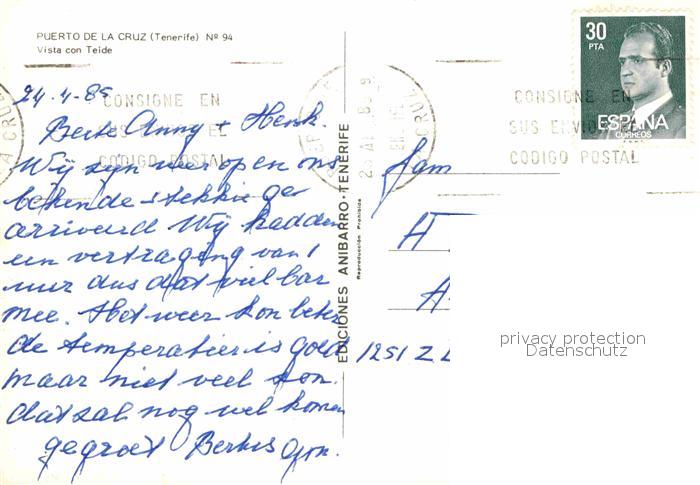 PUERTO DE LA CRUZ (Tenerife) Nº 94
Vista con Teide
24-4-85
Beste Anny + Henk.
Wij zyn weer op en ons
bekende stekkie ge
arriveerd Wij hadden
een vertraging van 1
uur dus dat viel bar
mee. Het weer kon beter
de temperatuur is goed
maar niet veel zon.
dat zal nog wel komen
gegroet Bertus
EDICIONES ANIBARRO-TENERIFE
Reproducción Prohibida
CONSIGNE EN
SUS EL
CODIGO POSTAL
30
PTA
ESPAÑA
CORREOS
CONSIGNE EN
SUS ENVIOS
CODIGO POSTAL
Fam
H
A
1251 Z
privacy protection
Datenschutz